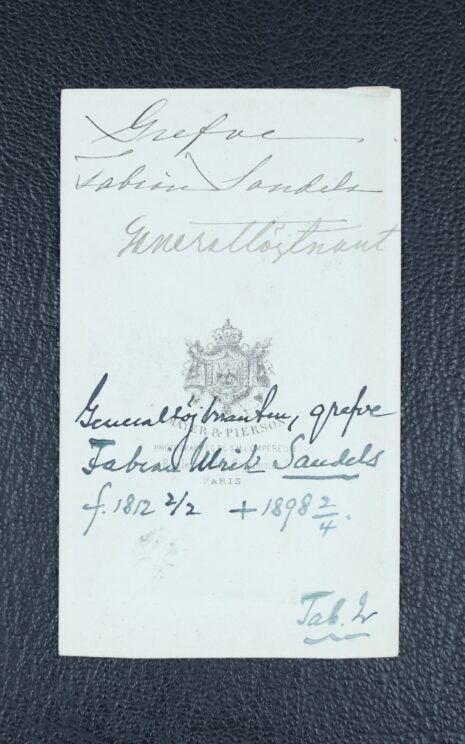 Grefve
Fabian Sandels
Generallöjtnant
Generallöjtnanten, grefve
MAYER & PIERSON
PHOTOGRAPHES DE S.M. L'EMPEREUR
Fabian Ulrik Sandels
PARIS
f. 1812 2/2 + 1898 2/4.
Tab. 2